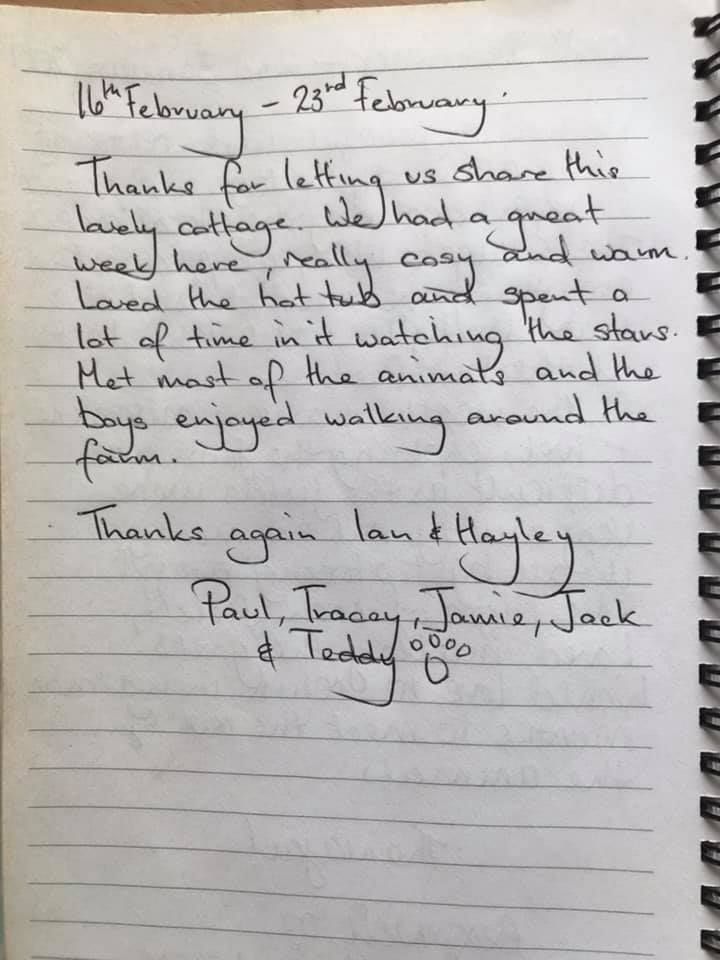 16th February - 23rd February.
Thanks for letting us share this
lovely cottage. We had a great
week here, really cosy and warm.
Loved the hot tub and spent a
lot of time in it watching the stars.
Met most of the animals and the
boys enjoyed walking around the
farm.
Thanks again Ian & Hayley
Paul, Tracey, Jamie, Jack
& Teddy